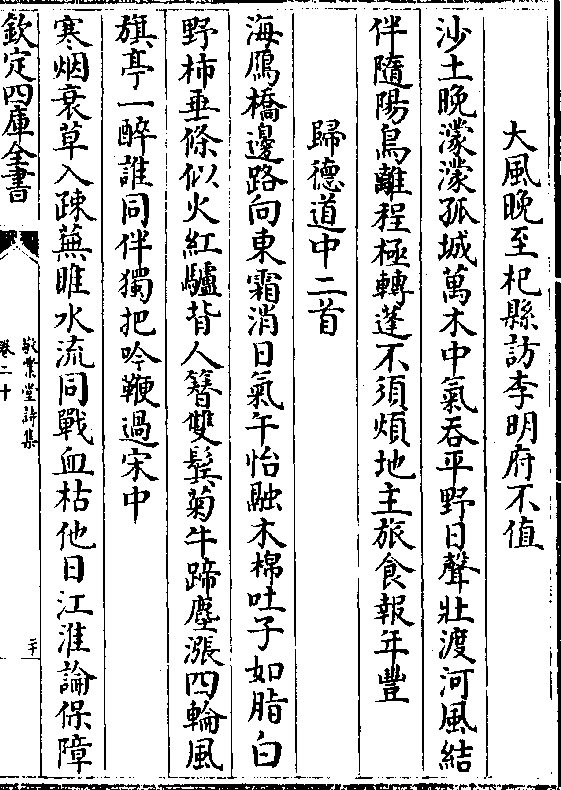 大風晚至杞縣訪李明府不值
沙土晚濛濛孤城萬木中氣吞平野日聲壯渡河風結
伴隨陽鳥離程極轉蓬不須煩地主旅食報年豐
歸德道中二首
海鴈橋邊路向東霜消日氣午怡融木棉吐子如脂白
野柿垂條似火紅驢背人簪雙鬂菊牛蹄塵漲四輪風
旗亭一醉誰同伴獨把吟鞭過宋中
寒烟衰草入疎蕪睢水流同戰血枯他日江淮論保障
欽定四庫全書
敬業堂詩集
卷二十
二十